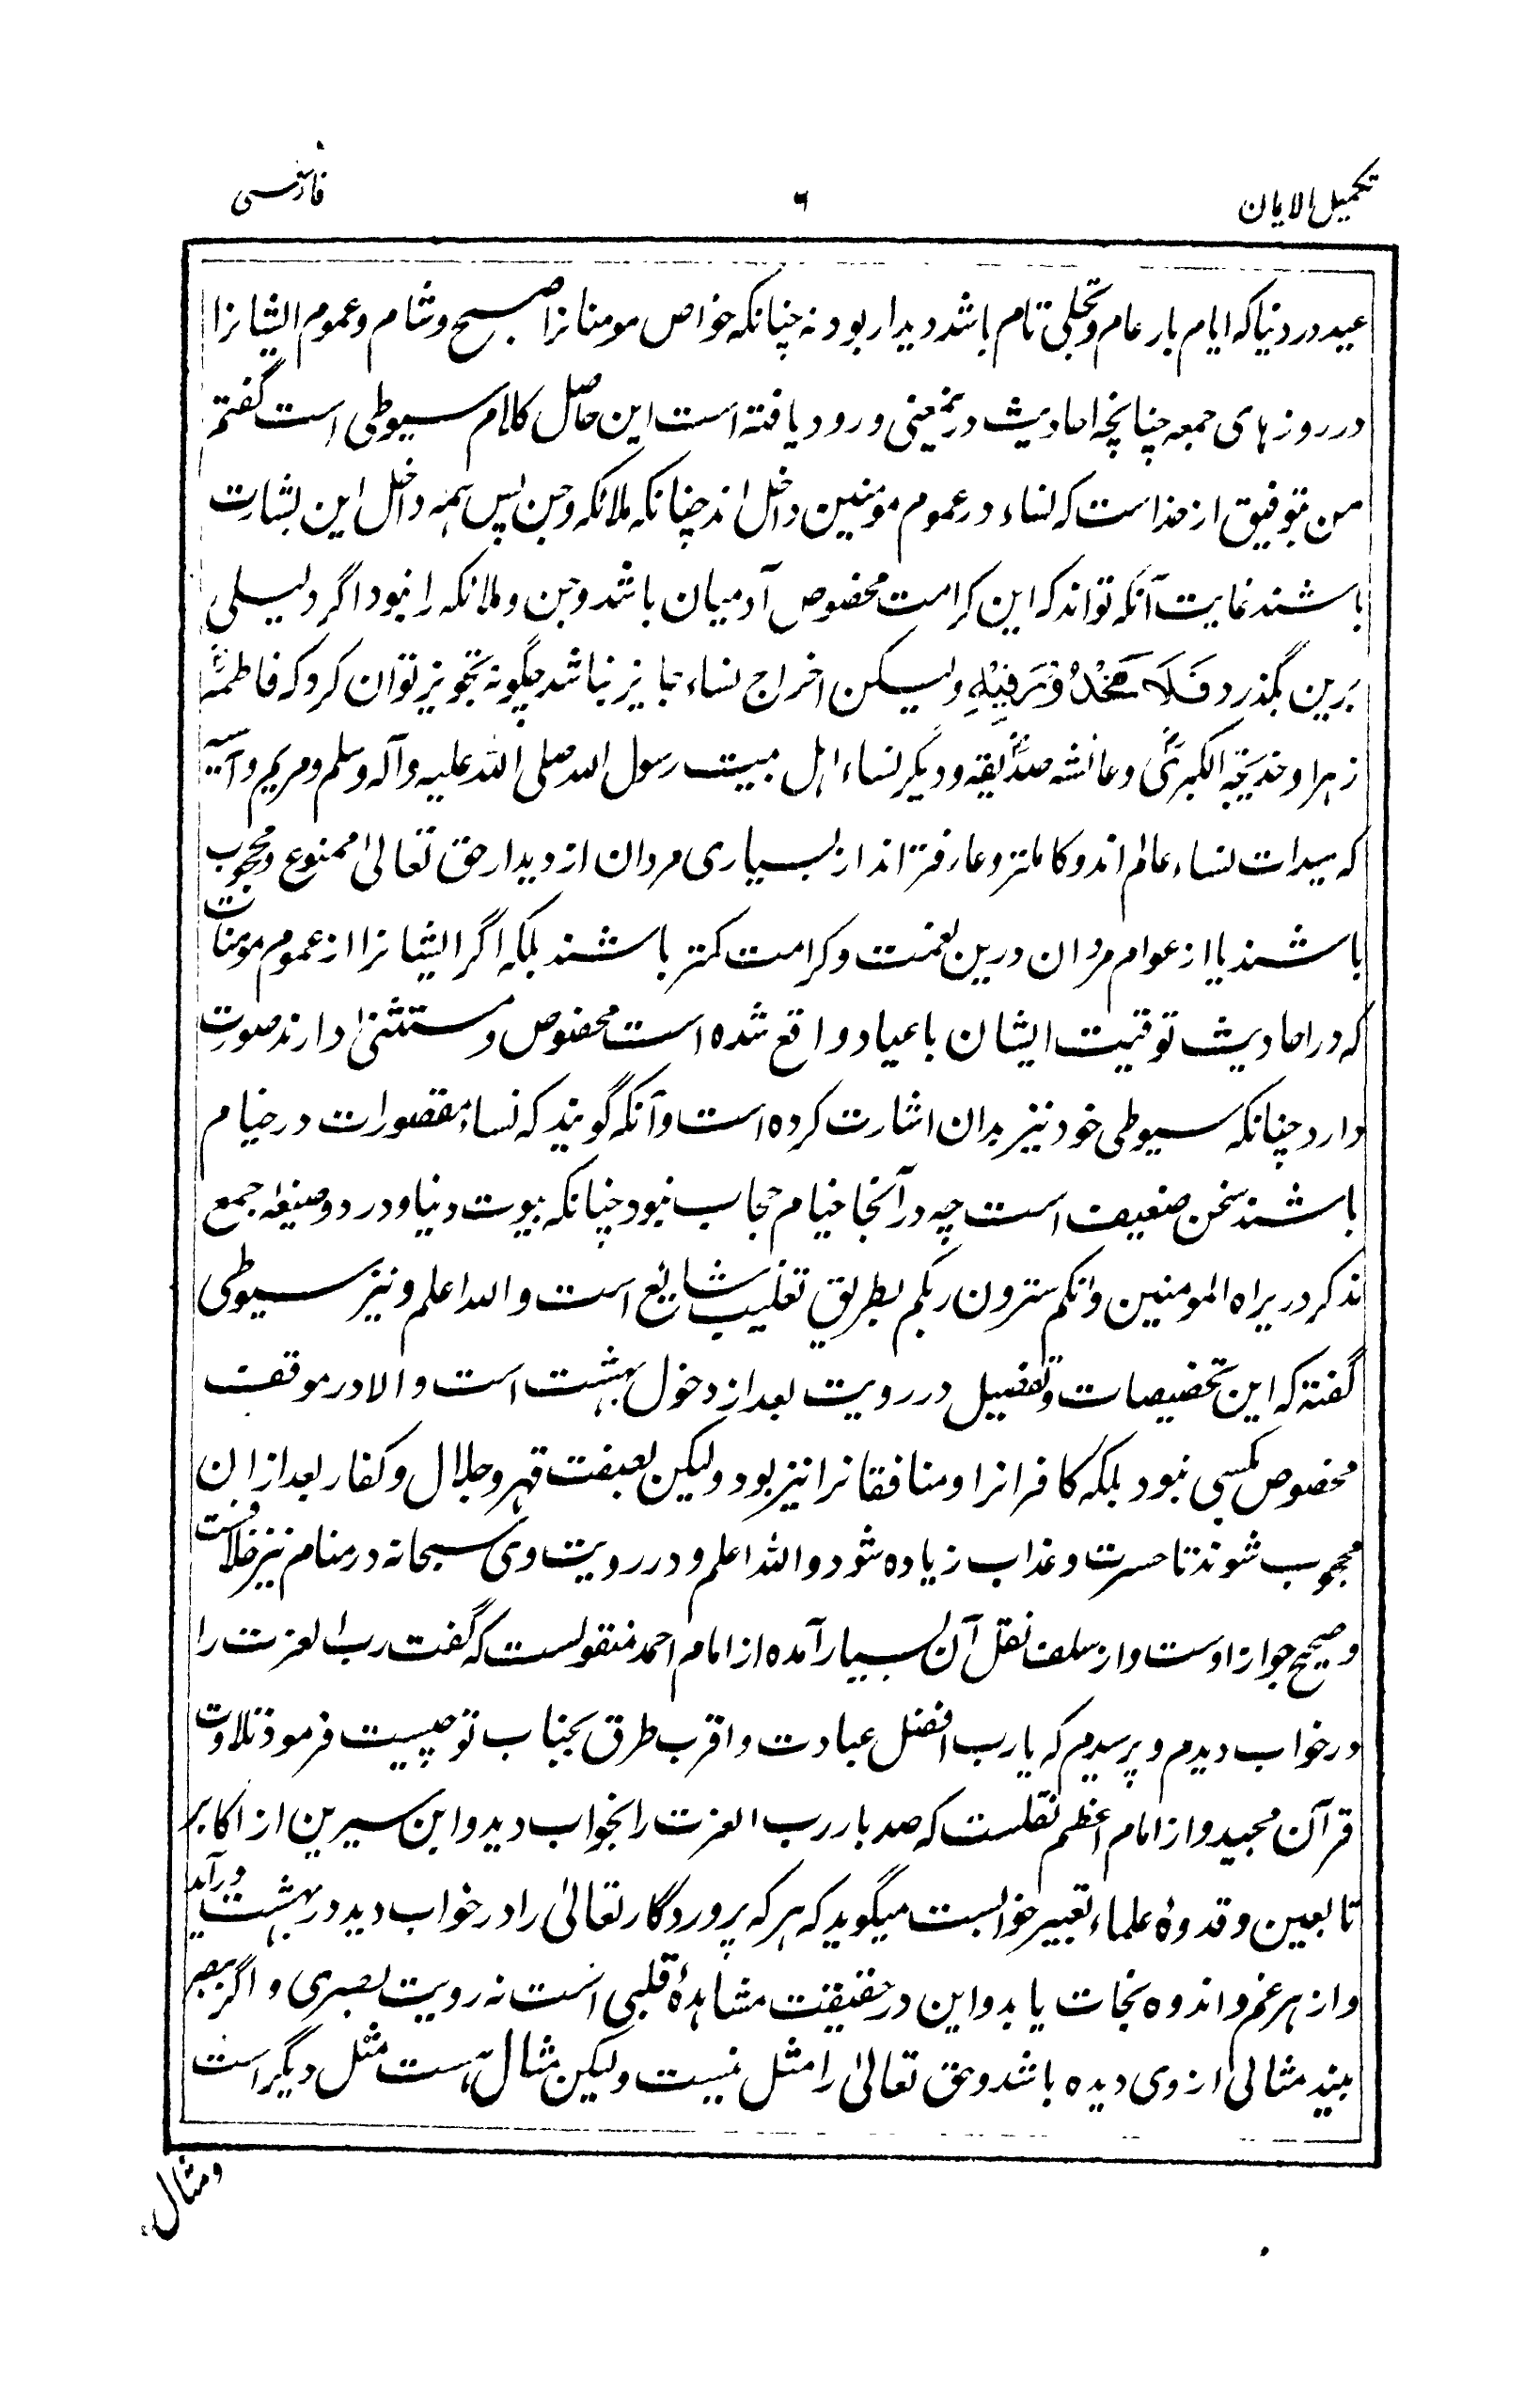 تکمیل الایمان
۶
فارسی
عید در دنیا که ایام بار عام و تجلی تام باشد دیدار بود نه چنانکه خواص مومنانرا صبح و شام و عموم ایشانرا
در روزهای جمعه چنانچه احادیث درینمعنی ورود یافته است این حاصل کلام سیوطی است گفتم
من بتوفیق از خداست که نساء در عموم مومنین داخل اند چنانکه ملائکه و جن پس همه داخل این بشارت
باشند غایت آنکه تواند که این کرامت مخصوص آدمیان باشد و جن و ملائکه را نبود اگر دلیلی
برین بگذرد فَلَا مَحْذُوْرَ فِیْهِ ولیکن اخراج نساء جایز نباشد چگونه تجویز توان کرد که فاطمهؓ
زهرا و خدیجة الکبریؓ و عائشه صدیقهؓ و دیگر نساء اهل بیت رسول الله صلی الله علیه وآله وسلم و مریم و آسیه
که سیدات نساء عالم اند و کاملتر و عارفتر اند از بسیاری مردان از دیدار حق تعالیٰ ممنوع و محجوب
باشند یا از عوام مردان درین نعمت و کرامت کمتر باشند بلکه اگر ایشانرا از عموم مومنات
که در احادیث توقیت ایشان باعیاد واقع شده است مخصوص و مستثنیٰ دارند صورت
دارد چنانکه سیوطی خود نیز بدان اشارت کرده است و آنکه گویند که نساء مقصورات در خیام
باشند سخن ضعیف است چه در آنجا خیام حجاب نبود چنانکه بیوت دنیا و در دو صیغه جمع
مذکر در یراه المومنین و انکم سترون ربکم بطریق تغلیب شایع است والله اعلم و نیز سیوطی
گفته که این تخصیصات و تفضیل در رویت بعد از دخول بهشت است والا در موقف
مخصوص بکسی نبود بلکه کافرانرا و منافقانرا نیز بود ولیکن بصفت قهر و جلال و کفار بعد ازان
محجوب شوند تا حسرت و عذاب زیاده شود والله اعلم و در رویت وی سبحانه در منام نیز خلافست
و صحیح جواز اوست و از سلف نقل آن بسیار آمده از امام احمد منقولست که گفت رب العزت را
در خواب دیدم و پرسیدم که یارب افضل عبادت و اقرب طرق بجناب تو چیست فرمود تلاوت
قرآن مجید و از امام اعظم نقلست که صد بار رب العزت را بخواب دید و ابن سیرین از اکابر
تابعین و قدوهٔ علماء تعبیر خوابست میگوید که هر که پروردگار تعالیٰ را در خواب دید در بهشت درآید
و از هر غم و اندوه نجات یابد و این در حقیقت مشاهدهٔ قلبی است نه رویت بصری و اگر ببصر
بیند مثالی از وی دیده باشد و حق تعالیٰ را مثل نیست ولیکن مثال هست مثل دیگر است
و مثال